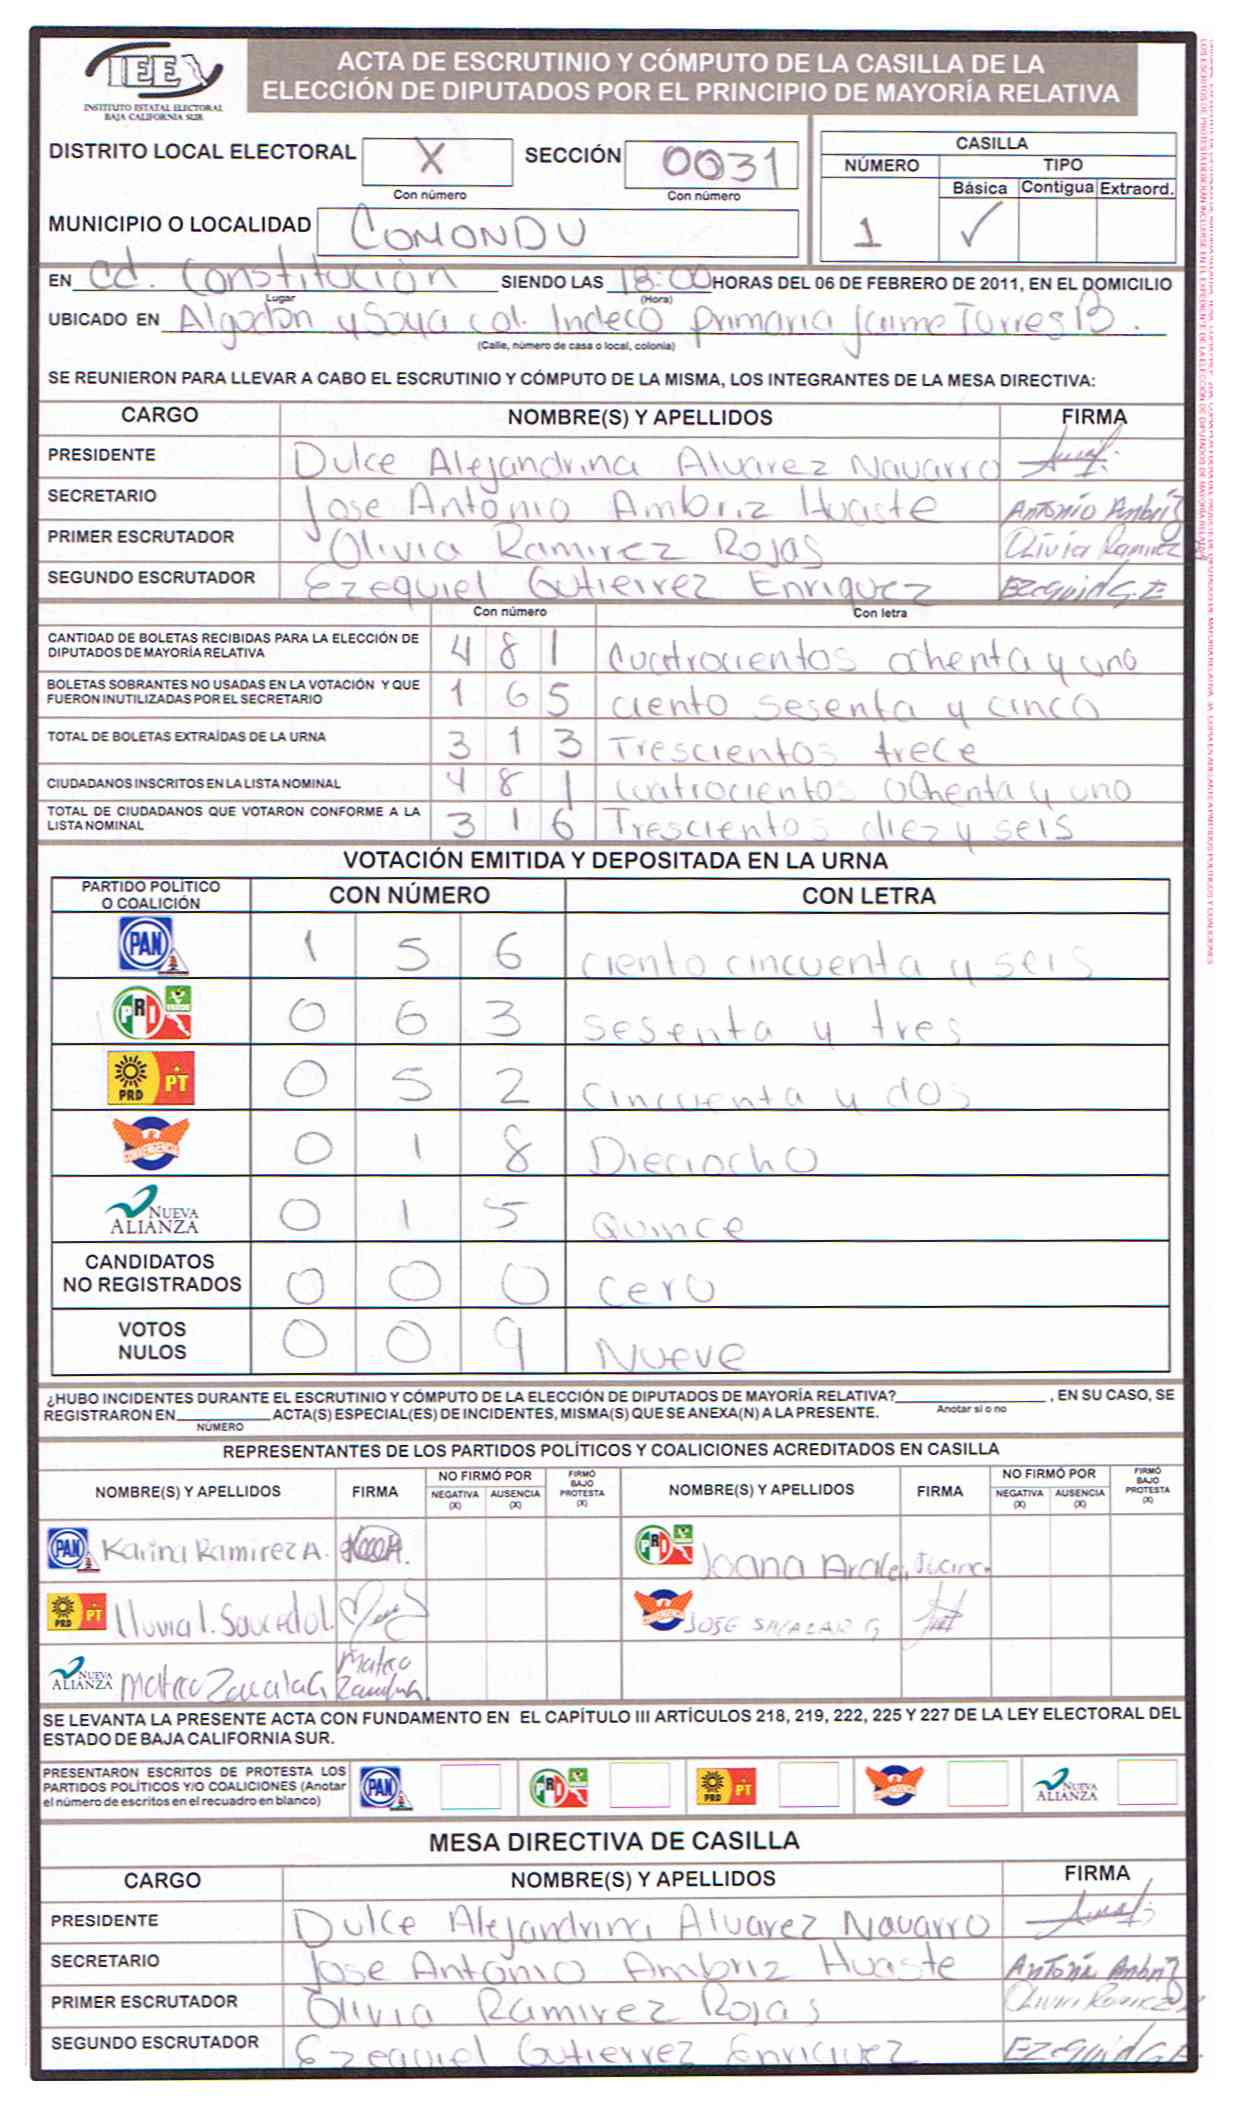 IEE
INSTITUTO ESTATAL ELECTORAL
BAJA CALIFORNIA SUR
ACTA DE ESCRUTINIO Y CÓMPUTO DE LA CASILLA DE LA
ELECCIÓN DE DIPUTADOS POR EL PRINCIPIO DE MAYORÍA RELATIVA
DISTRITO LOCAL ELECTORAL X SECCIÓN 0031
Con número Con número
CASILLA
NÚMERO TIPO
Básica Contigua Extraord.
1 ✓
MUNICIPIO O LOCALIDAD COMONDU
EN Cd. Constitución SIENDO LAS 18:00 HORAS DEL 06 DE FEBRERO DE 2011, EN EL DOMICILIO
Lugar (Hora)
UBICADO EN Algodón y Soya col. Indeco primaria Jaime Torres B.
(Calle, número de casa o local, colonia)
SE REUNIERON PARA LLEVAR A CABO EL ESCRUTINIO Y CÓMPUTO DE LA MISMA, LOS INTEGRANTES DE LA MESA DIRECTIVA:
CARGO NOMBRE(S) Y APELLIDOS FIRMA
PRESIDENTE Dulce Alejandrina Alvarez Navarro
SECRETARIO Jose Antonio Ambriz Huaste Antonio Ambriz
PRIMER ESCRUTADOR Olivia Ramirez Rojas Olivia Ramirez
SEGUNDO ESCRUTADOR Ezequiel Gutierrez Enriquez Ezequiel G.E
Con número Con letra
CANTIDAD DE BOLETAS RECIBIDAS PARA LA ELECCIÓN DE
DIPUTADOS DE MAYORÍA RELATIVA 4 8 1 cuatrocientos ochenta y uno
BOLETAS SOBRANTES NO USADAS EN LA VOTACIÓN Y QUE
FUERON INUTILIZADAS POR EL SECRETARIO 1 6 5 ciento sesenta y cinco
TOTAL DE BOLETAS EXTRAÍDAS DE LA URNA 3 1 3 Trescientos trece
CIUDADANOS INSCRITOS EN LA LISTA NOMINAL 4 8 1 cuatrocientos ochenta y uno
TOTAL DE CIUDADANOS QUE VOTARON CONFORME A LA
LISTA NOMINAL 3 1 6 Trescientos diez y seis
VOTACIÓN EMITIDA Y DEPOSITADA EN LA URNA
PARTIDO POLÍTICO
O COALICIÓN CON NÚMERO CON LETRA
PAN 1 5 6 ciento cincuenta y seis
PRI VERDE 0 6 3 sesenta y tres
PRD PT 0 5 2 cincuenta y dos
CONVERGENCIA 0 1 8 Dieciocho
NUEVA ALIANZA 0 1 5 Quince
CANDIDATOS
NO REGISTRADOS 0 0 0 cero
VOTOS
NULOS 0 0 9 Nueve
¿HUBO INCIDENTES DURANTE EL ESCRUTINIO Y CÓMPUTO DE LA ELECCIÓN DE DIPUTADOS DE MAYORÍA RELATIVA? , EN SU CASO, SE
Anotar si o no
REGISTRARON EN ACTA(S) ESPECIAL(ES) DE INCIDENTES, MISMA(S) QUE SE ANEXA(N) A LA PRESENTE.
NÚMERO
REPRESENTANTES DE LOS PARTIDOS POLÍTICOS Y COALICIONES ACREDITADOS EN CASILLA
NOMBRE(S) Y APELLIDOS FIRMA NO FIRMÓ POR NEGATIVA (X) AUSENCIA (X) FIRMÓ BAJO PROTESTA (X) NOMBRE(S) Y APELLIDOS FIRMA NO FIRMÓ POR NEGATIVA (X) AUSENCIA (X) FIRMÓ BAJO PROTESTA (X)
PAN Karina Ramirez A. PRI Joana
PRD PT Lluvia I. Saucedo CONVERGENCIA JOSE SALAZAR G
NUEVA ALIANZA Mateo Mateo
SE LEVANTA LA PRESENTE ACTA CON FUNDAMENTO EN EL CAPÍTULO III ARTÍCULOS 218, 219, 222, 225 Y 227 DE LA LEY ELECTORAL DEL
ESTADO DE BAJA CALIFORNIA SUR.
PRESENTARON ESCRITOS DE PROTESTA LOS
PARTIDOS POLÍTICOS Y/O COALICIONES (Anotar
el número de escritos en el recuadro en blanco) PAN PRI PRD PT CONVERGENCIA NUEVA ALIANZA
MESA DIRECTIVA DE CASILLA
CARGO NOMBRE(S) Y APELLIDOS FIRMA
PRESIDENTE Dulce Alejandrina Alvarez Navarro
SECRETARIO Jose Antonio Ambriz Huaste Antonio Ambriz
PRIMER ESCRUTADOR Olivia Ramirez Rojas Olivia Ramirez
SEGUNDO ESCRUTADOR Ezequiel Gutierrez Enriquez Ezequiel G.E